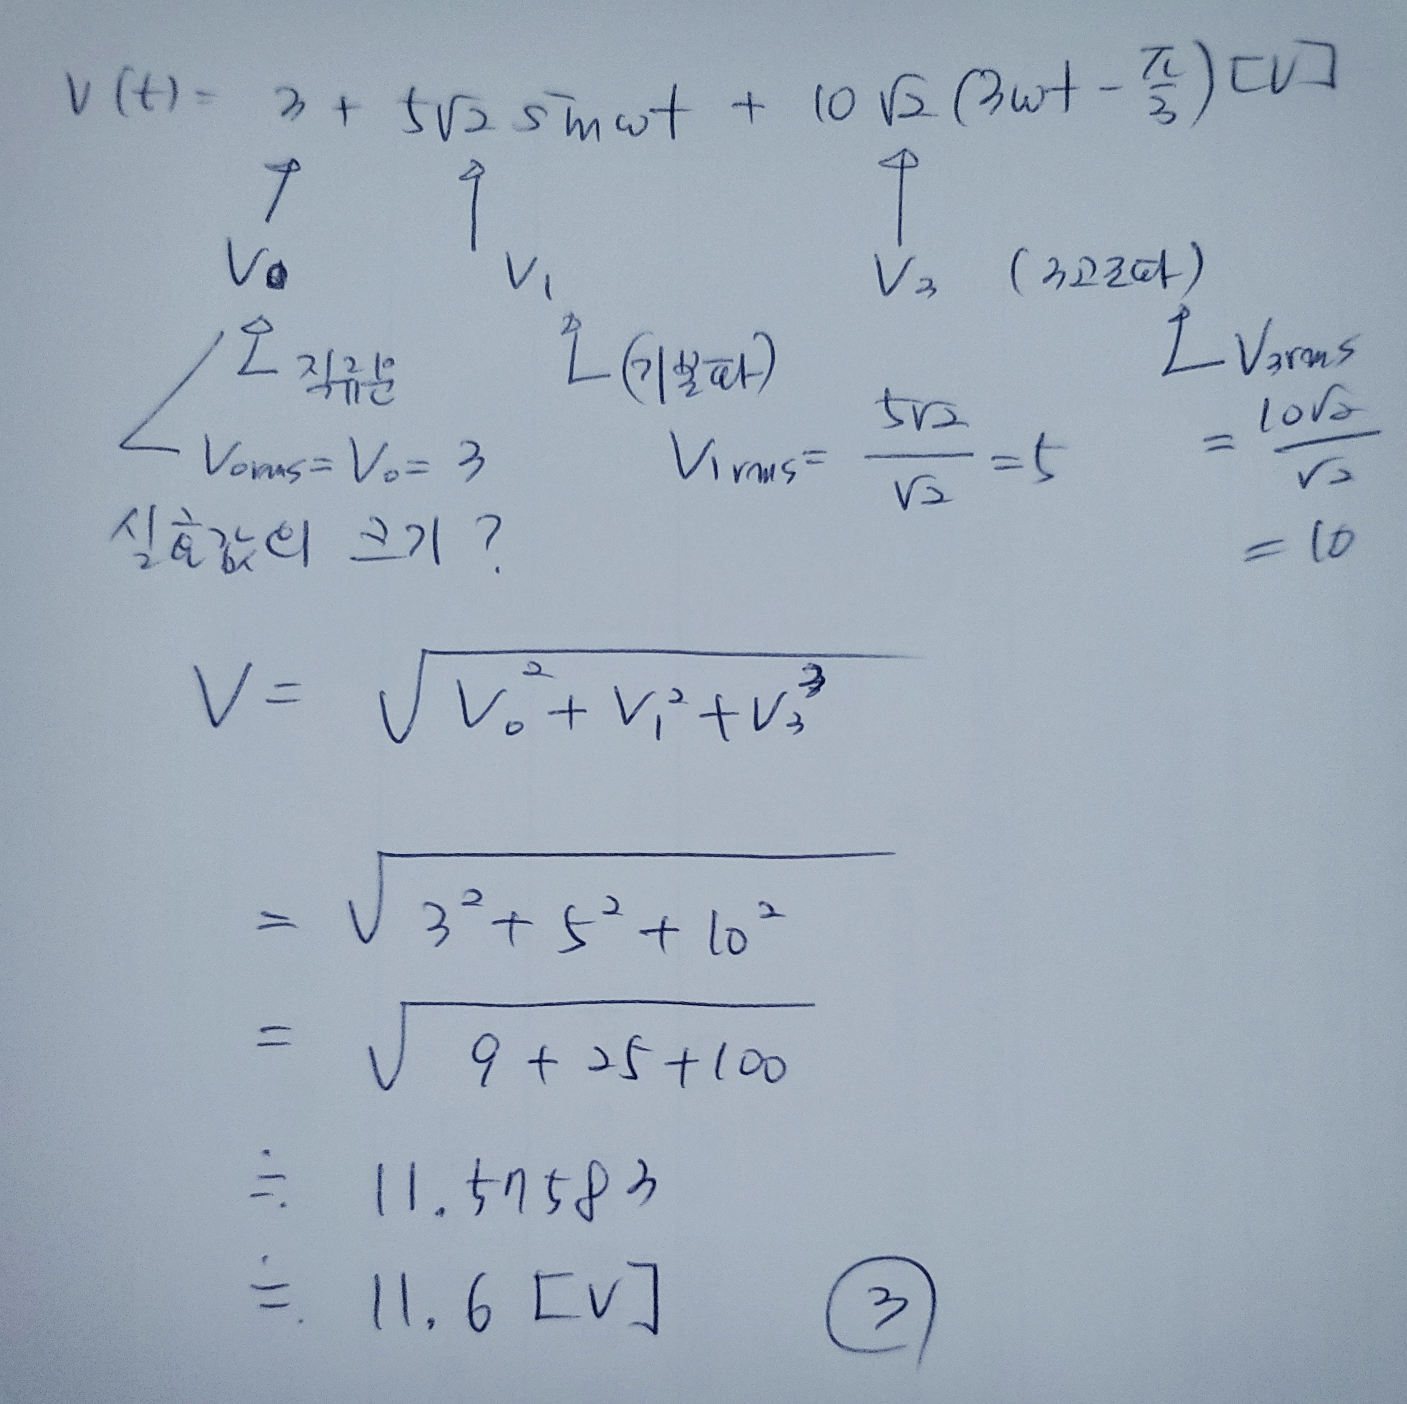 v(t) = 3 + 5√2 sinωt + 10√2 (3ωt - π/3) [V]
V0 V1 V3 (3고조파)
직류분 (기본파) V3rms
V0rms = V0 = 3 V1rms = 5√2/√2 = 5 = 10√2/√2
실효값의 크기? = 10
V = √(V0² + V1² + V3³)
= √(3² + 5² + 10²)
= √(9 + 25 + 100)
≒ 11.57583
≒ 11.6 [V] ③